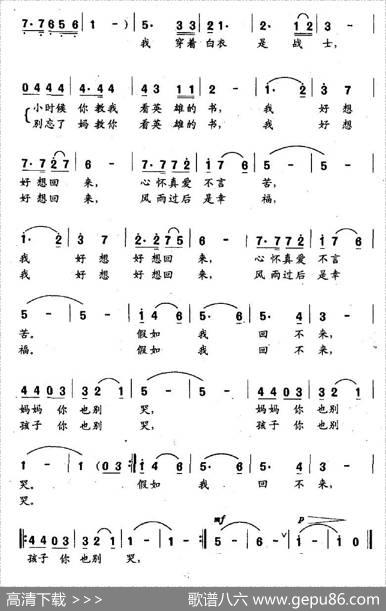 7·7656 5 6 | 1 - ) | 5· 3 3 | 2 1· | 2· 1 2 | 3 - |
我 穿着 白衣 是 战 士,
0 4 4 4 | 4· 4 4 | 3·3 3 2 | 2 - | 1· 2 | 3 7 |
小时候 你教我 看英雄的 书, 我 好想
别忘了 妈教你 看英雄的 书, 我 好想
7·7 2 7 | 6 - | 7·7 7 2 | 1 7 6 | 5 - | 5 - |
好想回 来, 心怀真爱 不言 苦,
好想回 来, 风雨过后 是幸 福,
1· 2 | 3 7 | 2·2 7 5 | 6 - | 7·7 7 2 | 1 7 6 |
我 好想 好想回 来, 心怀真爱 不言
我 好想 好想回 来, 风雨过后 是幸
5 - | 5 - | 1 4 6 | 5· 6 | 5· 4 | 3 - |
苦。 假如 我 回 不 来,
福。 假如 我 回 不 来,
4 4 0 3 | 3 2 1 | 5 - | 5 - | 4 4 0 3 | 3 2 1 |
妈妈 你 也别 哭, 妈妈 你 也别
孩子 你 也别 哭, 孩子 你 也别
1 - | 1 (0 3) :‖: 1 4 6 | 5· 6 | 5· 4 | 3 - |
哭。 假如 我 回 不 来,
哭。
mf p
4 4 0 3 | 3 2 1 :‖ 2 - | 2 5 | 6 - | 1 - | 1 0 ‖
孩子 你 也别 哭,
高清下载 >>>
歌谱八六 www.gepu86.com